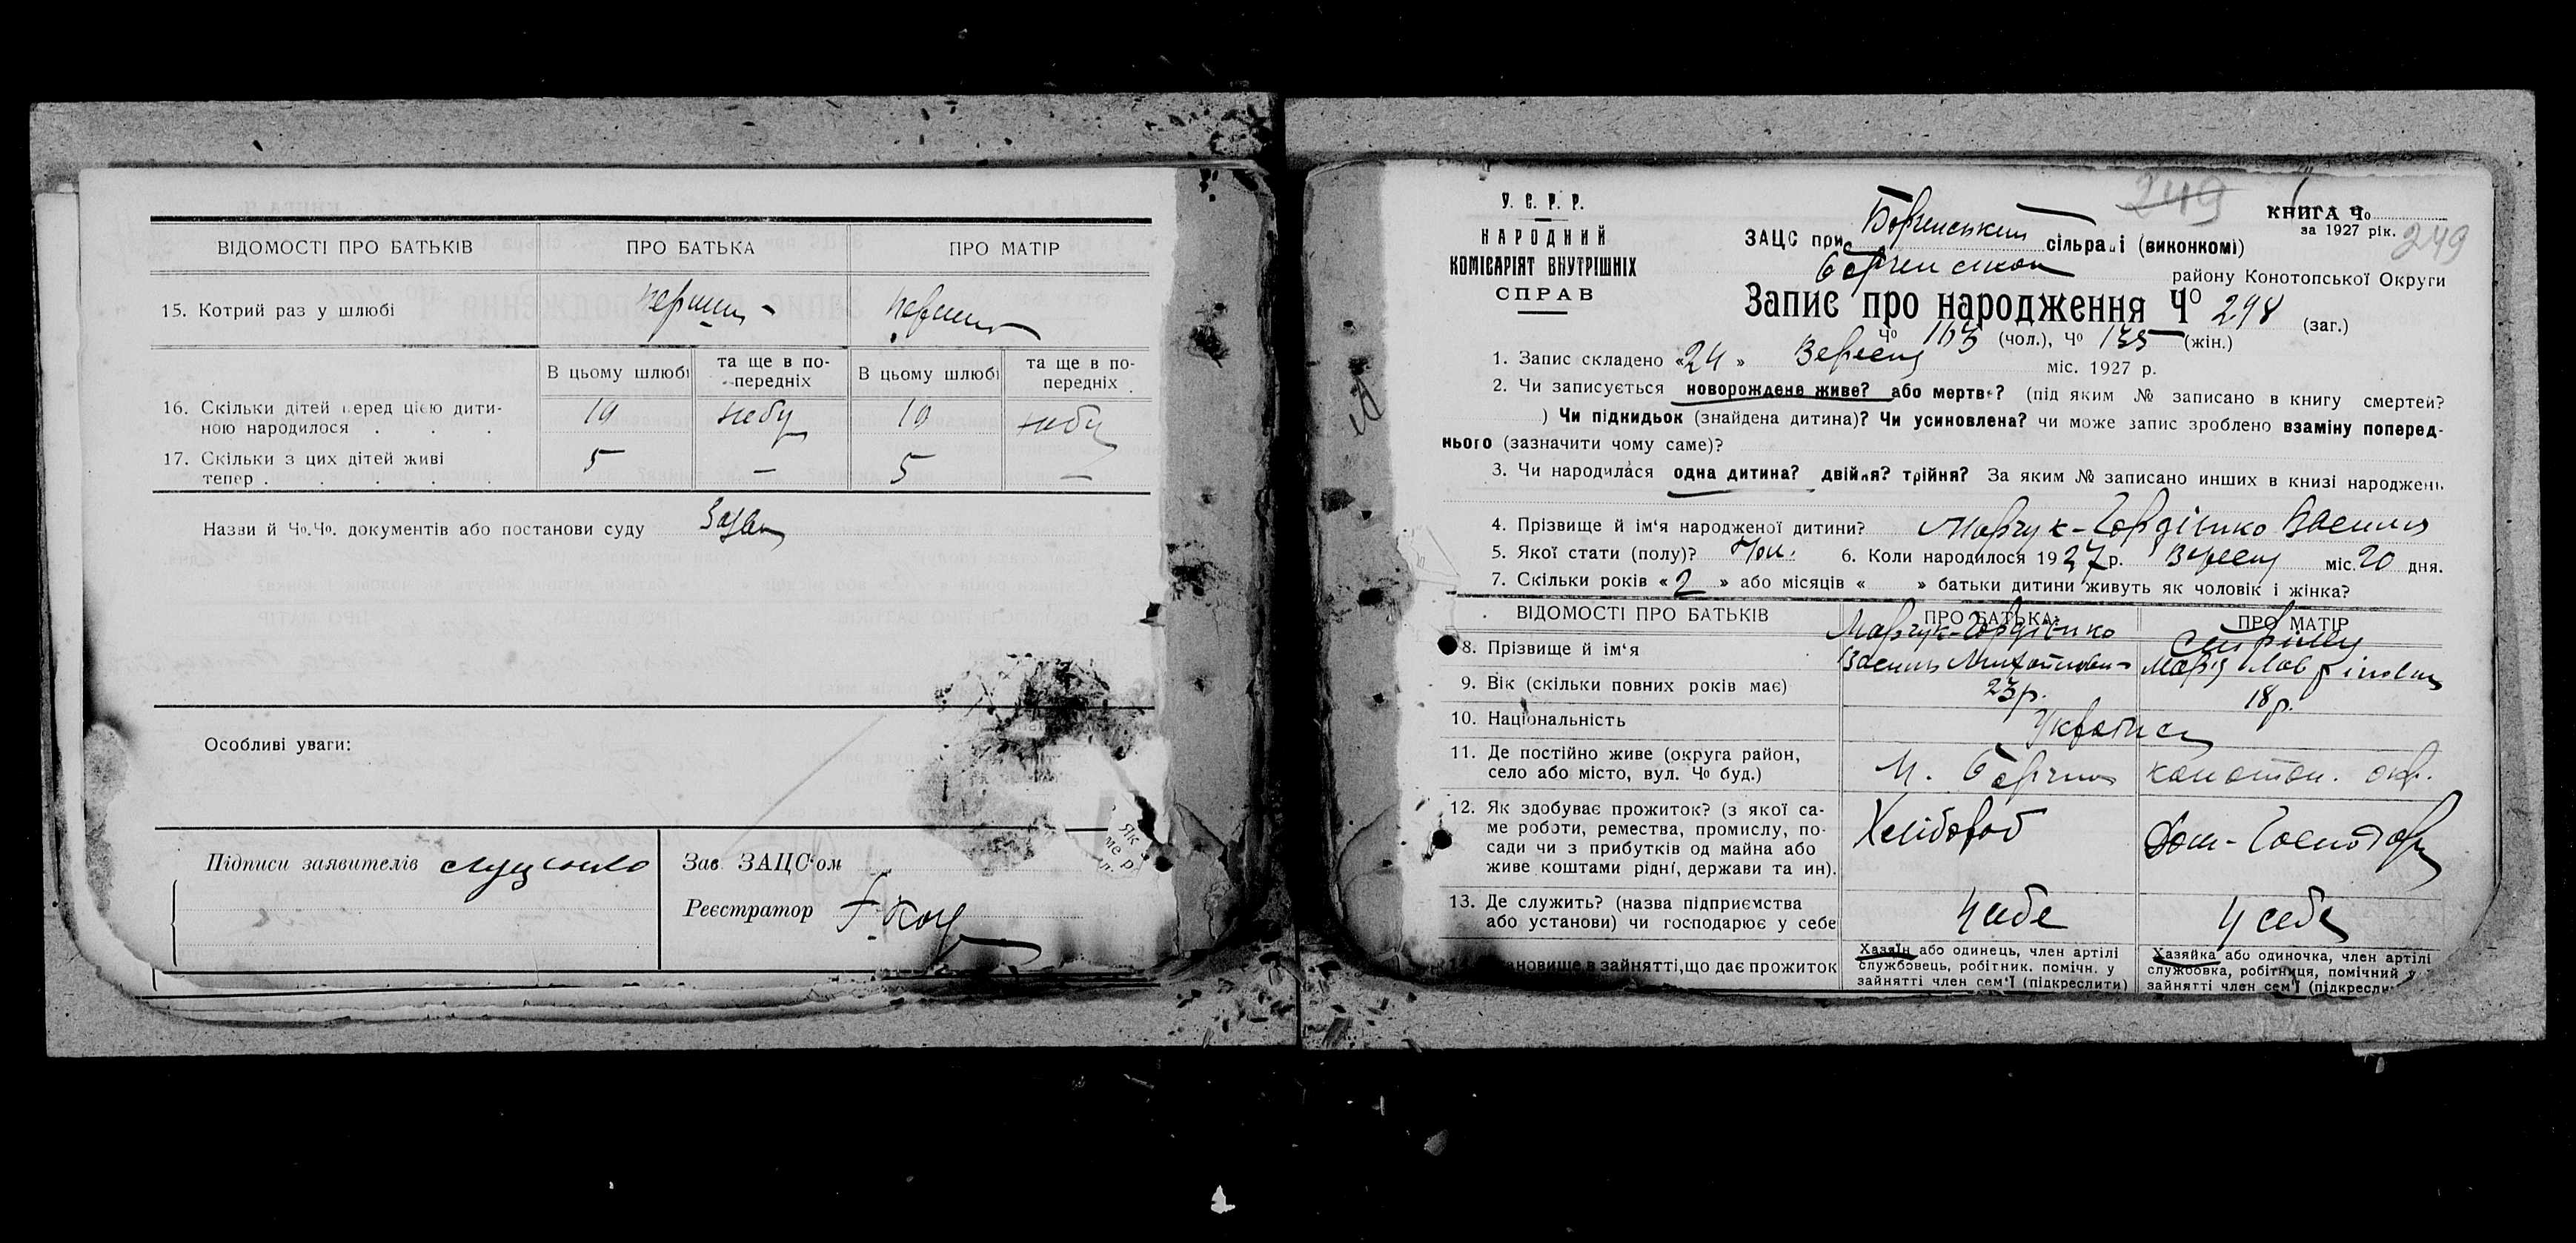 ВІДОМОСТІ ПРО БАТЬКІВ ПРО БАТЬКА ПРО МАТІР
15. Котрий раз у шлюбі
В цьому шлюбі та ще в по-передніх В цьому шлюбі та ще в по-передніх
16. Скільки дітей перед цією дити- 10 небу 10 небу
ною народилося . . .
17. Скільки з цих дітей живі 5 — 5 —
тепер . . . . .
Назви й Чо.Чо. документів або постанови суду
Особливі уваги:
Підписи заявителів Луценко
Зав. ЗАЦС‘ом
Реєстратор
У. С. Р. Р.
НАРОДНИЙ
КОМІСАРІЯТ ВНУТРІШНІХ
СПРАВ
249
КНИГА Чо
за 1927 рік.
249
ЗАЦС при Борзенський сільраді (виконкомі)
Борзенской району Конотопської Округи
Запис про народження Чо 298 (заг.)
Чо 163 (чол.), Чо 135 (жін.)
1. Запис складено «24» Вересня міс. 1927 р.
2. Чи записується новорождене живе? або мертве? (під яким № записано в книгу смертей?
) Чи підкидьок (знайдена дитина)? Чи усиновлена? чи може запис зроблено взаміну поперед-
нього (зазначити чому саме)?
3. Чи народилася одна дитина? двійня? трійня? За яким № записано инших в книзі народжень
4. Прізвище й ім‘я народженої дитини? Марчук-Гордієнко Василь
5. Якої стати (полу)? Чол. 6. Коли народилося 1927р. Вересня міс. 20 дня.
7. Скільки років «2» або місяців « » батьки дитини живуть як чоловік і жінка?
ВІДОМОСТІ ПРО БАТЬКІВ ПРО БАТЬКА ПРО МАТІР
Марчук-Гордієнко
8. Прізвище й ім‘я Василь Михайлович Марія
9. Вік (скільки повних років має) 23р. 18р.
10. Національність Українці
11. Де постійно живе (округа район,
село або місто, вул. Чо буд.) М. Борзна конотоп. окр.
12. Як здобуває прожиток? (з якої са-
ме роботи, ремества, промислу, по-
сади чи з прибутків од майна або
живе коштами рідні, держави та ин).
Хлібороб Дом-Господар
13. Де служить? (назва підприємства
або установи) чи господарює у себе У себе У себе
ановище в зайнятті, що дає прожиток
Хазяїн або одинець, член артілі
службовець, робітник. помічн. у
зайнятті член сем‘ї (підкреслити)
Хазяйка або одиночка, член артілі
службовка, робітниця, помічний у
зайнятті член сем‘ї (підкресли